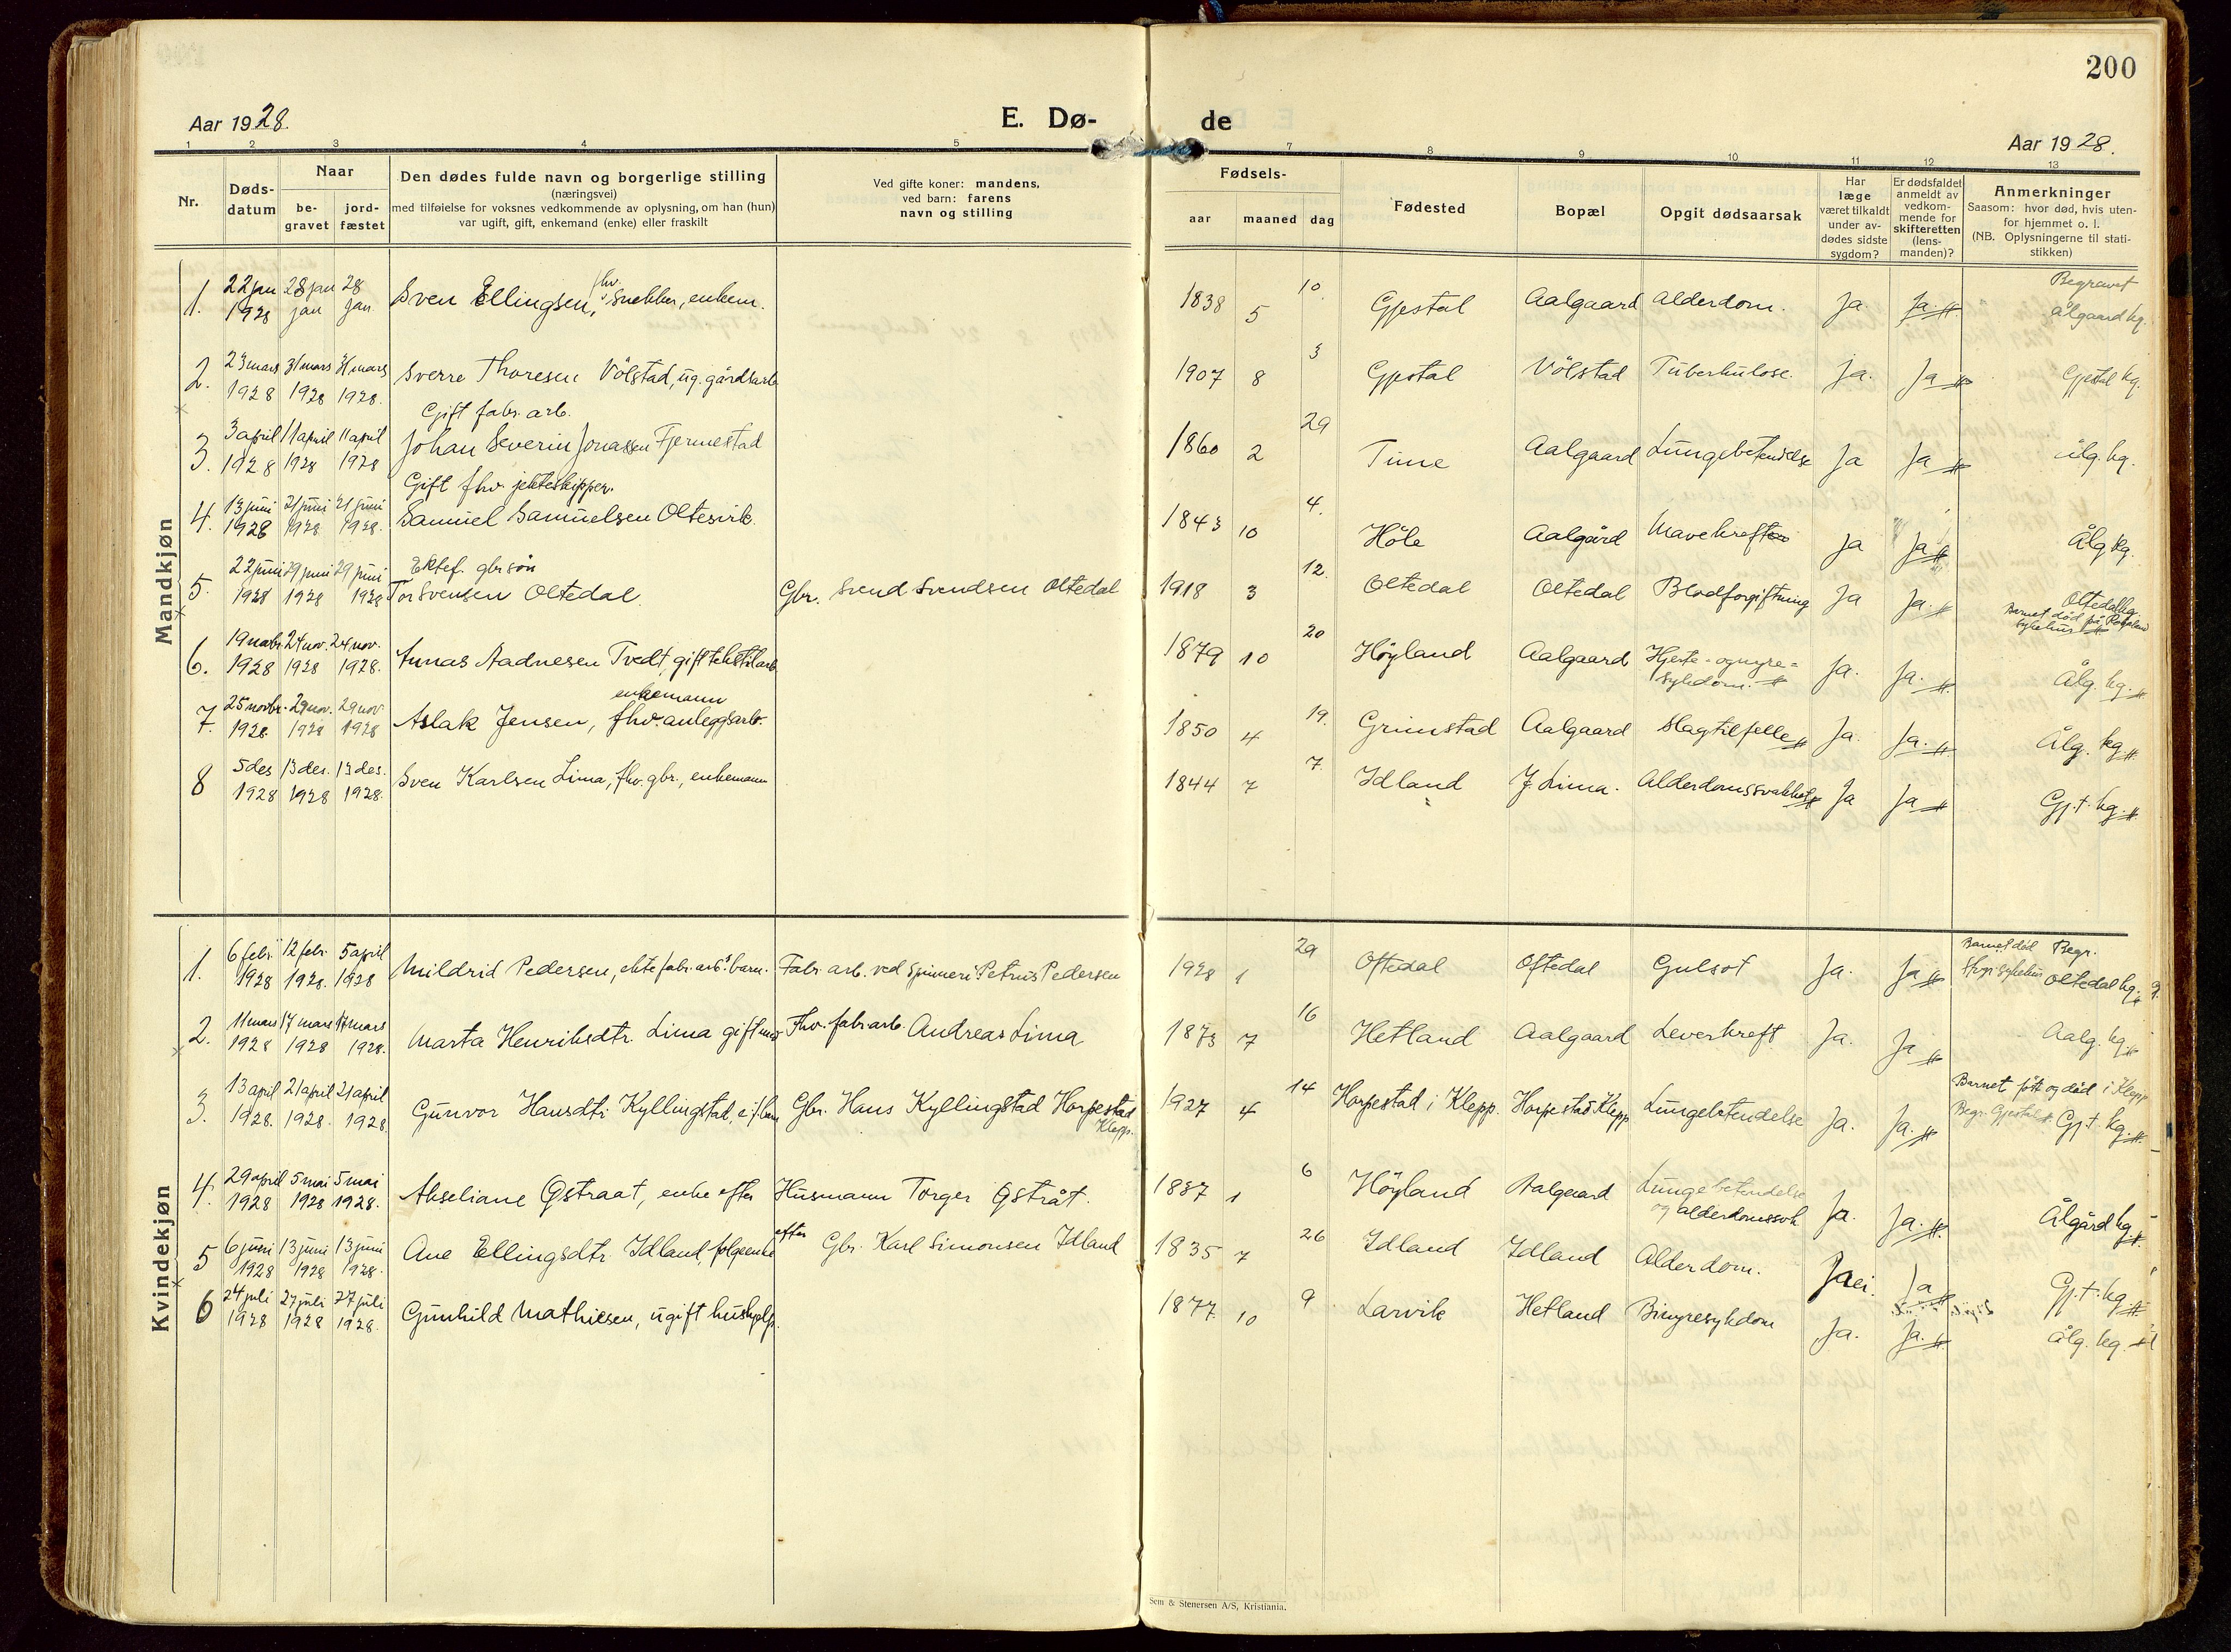 200
Aar 1928.
E. Dø-
de
Aar 1928.
1 2 3 4 5 7 8 9 10 11 12 13
Nr.
Døds-
datum
Naar
be-
gravet
jord-
fæstet
Den dødes fulde navn og borgerlige stilling
(næringsvei)
med tilføielse for voksnes vedkommende av oplysning, om han (hun)
var ugift, gift, enkemand (enke) eller fraskilt
Ved gifte koner: mandens,
ved barn: farens
navn og stilling
Fødsels-
aar maaned dag
Fødested
Bopæl
Opgit dødsaarsak
Har
læge
været tilkaldt
under av-
dødes sidste
sygdom?
Er dødsfaldet
anmeldt av
vedkom-
mende for
skifteretten
(lens-
manden)?
Anmerkninger
Saasom: hvor død, hvis uten-
for hjemmet o. l.
(NB. Oplysningerne til stati-
stikken)
Mandkjøn
1. 22 jan 1928 28 jan jan 28 jan Sven Ellingsen, fhv. Snekker, enkem. 1838 5 10. Gjestal Aalgaard Alderdom. Ja. Ja. Begravet ålgaard kg.
2. 23 mars 1928 31 mars 1928 31 mars 1928. Sverre Thoresen Völstad, ug. gårdsarb 1907 8 3 Gjestal Völstad Tuberkulose. Ja. Ja Gjestal kg.
Gift fabr. arb.
3. 3 april 1928 11 april 1928 11 april 1928 Johan Severin Jonassen Fjermestad 1860 2 29 Time Aalgaard Lungebetendelse Ja Ja ålg. kg.
Gift fhv. jekteskipper.
4. 13 juni 1928 21 juni 1928 21 juni 1928. Samuel Samuelsen Oltesvik. 1843 10 4. Höle Aalgård Mavekreft Ja Ja Ålg kg.
Ektef. gbr søn
5. 22 juni 1928 29 juni 1928 29 juni 1928 Tor Svensen Oltedal. Gbr. Svend Svendsen Oltedal 1918 3 12. Oltedal Oltedal Blodforgiftning Ja Ja. Oltedal kg.
Barnet död på Rogaland
sykehus
6. 19 novbr. 1928 24 nov. 1928 24 nov. 1928. Aadnesen Tvedt, gift tekstilarb 1879 10 20 Höyland Aalgaard Hjerte- og nyre-
sykdom. Ja. Ja. Ålg. kg.
enkemann
7. 25 novbr. 1928. 29 nov. 1928 29 nov 1928 Aslak Jensen, fhv. anleggsarb. 1850 4 19. Grimstad Aalgaard Slagtilfelle Ja. Ja. Ålg. kg
8 5 des 1928 13 des. 1928 13 des. 1928. Sven Karlsen Lima, fhv. gbr., enkemann 1844 7 7. Idland Y. Lima. Alderdomssvakhet Ja Ja Gj.t. kg.
Kvindekjøn
1. 6 febr. 1928 12 febr. 1928. 5 april 1928 Mildrid Pedersen, ekte fabr. arb.s barn. Fabr. arb. ved spinneri Petrus Pedersen 1928 1 29 Oftedal Oftedal Gulsot Ja. Ja Barnet död sykehus Begr. Oltedal kg.
2. 11 mars 1928 17 mars 1928 17 mars 1928. Marta Henriksdtr. Lima gift med Fhv. fabr arb. Andreas Lima 1873 7 16 Hetland Aalgaard Leverkreft Ja. Ja Aalg. kg
3. 13 april 1928. 21 april 1928. 21 april 1928. Gunvor Hansdtr Kyllingstad, e.f. barn Gbr. Hans Kyllingstad Horpestad
Klepp. 1927 4 14 Horpestad i Klepp. Horpestad Klepp Lungebetendelse Ja. Ja. Barnet født og död i Klepp
Begr. Gjestal Gj.t. kg.
4. 29 april 1928 5 mai 1928 5 mai 1928. Akseliane Østraat, enke efter Husmann Torger Østråt. 1837 1 6 Höyland Aalgaard Lungebetendelse
og alderdomssvk Ja. Ja. Ålgård kg.
5 6 juni 1928 13 juni 1928 13 juni 1928. Ane Ellingsdtr Idland, folgeenke efter Gbr. Karl Simonsen Idland 1835 7 26 Idland Idland Alderdom. Ja Gj.t. kg.
6 24 juli 1928 27 juli 1928 27 juli 1928. Gunhild Mathiesen, ugift hushjelp. 1877 10 9 Larvik Hetland Binyresykdom Ja. Ja. Ålg. kg.
Sem & Stenersen A/S, Kristiania.